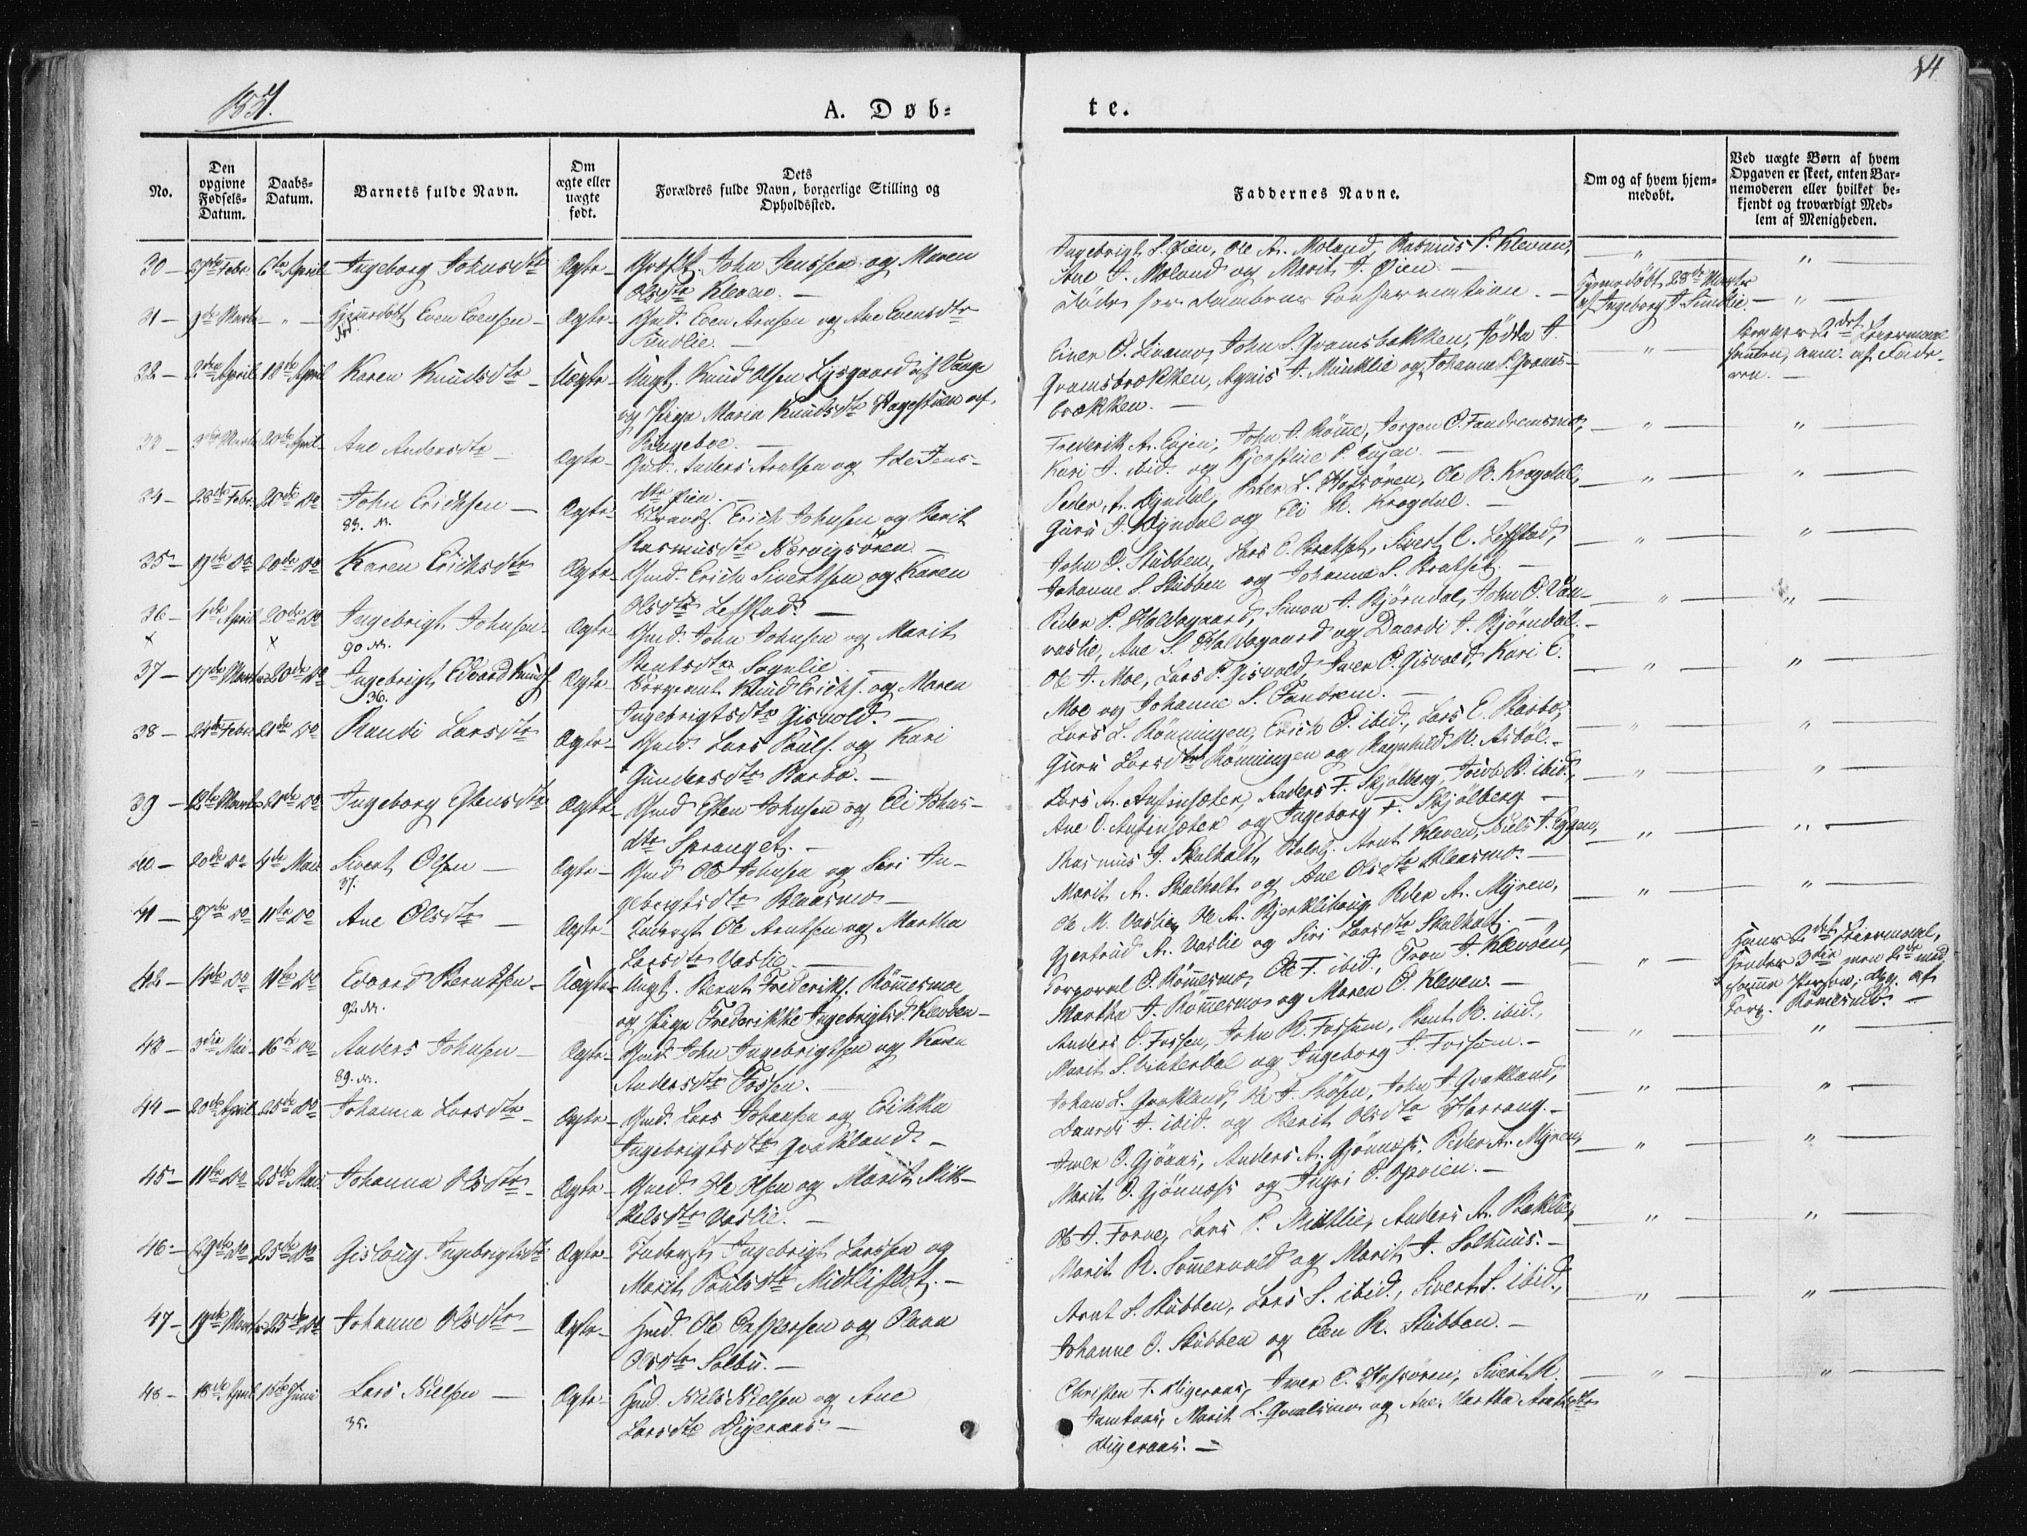 1851.
A. Døb-
te.
84
No.
Den
opgivne
Fødsels-
Datum.
Daabs-
Datum.
Barnets fulde Navn.
Om
ægte eller
uægte
født.
Dets
Forældres fulde Navn, borgerlige Stilling og
Opholdssted.
Faddernes Navne.
Om og af hvem hjem-
medøbt.
Ved uægte Børn af hvem
Opgaven er skeet, enten Bar-
nemoderen eller hvilket be-
kjendt og troværdigt Med-
lem af Menigheden.
30 27de Febr. 6te April Ingeborg Johnsdtr Ægte John Jenssen og Maren
Olsdtr Kleven.
Ingebrigt S. Øien, Ole A. Moland, Rasmus P. Kleven,
Ane J. Moland og Marit J. Øien
31 9de Marts Hjemdøbt Even Evensen Ægte Gmd. Even Arnsen og Ane Evensdtr
Lundlie.
Hjemmedøbt 28de Marts
af Ingeborg J. Lundlie
32 2den April 18de April Karen Knudsdtr Uægte Ungk. Knud Olsen Lysgaard af
og Pige Maria Knudsdtr af
Einer O. Livamo, John S. Gramsbækken,
Gramsbrækken, Agnis J. Munklie og Johanna P. Grams-
brækken.
33 20de April Ane Andersdtr Ægte Gmd. Anders Arntsen og Jens-
dtr Øien.
Frederik A. Engen, John J. Rømme, Jørgen O. Fandremsmo,
Kari J. ibid. og Kjerstine P. Engen.
34 28de Febr. 20de do John Erichsen Ægte Erich Johnsen og Berit
83. N.
Rasmusdtr Nervigsøren
Peder A. Dyndal, Peder L. Hofsøren, Ole R. Krogdal,
Guru J. Dyndal og Eli R. Krogdal.
35 19de do 20de do Karen Erichsdtr Ægte Gmd. Erich Sivertsen og Karen
Olsdtr Lefstad.
John O. Stubben, Lars E. Bratset, Sivert E. Lefstad,
Johanne S. Stubben og Johanna S. Bratset.
36 4de April 20de do Ingebrigt Johnsen Ægte Gmd. John Johnsen og Marit
90 N.
Bentsdtr Sognlie.
Peder P. Haldogaard, Simon J. Bjørndal, John O. Van-
vaslie, Ane S. Haldogaard og Daardi J. Bjørndal.
37 17de Marts 20de do Ingebrigt Edvard Knuds. Ægte Sergeant Knud Erichs. og Maren
36.
Ingebrigtsdtr Gisvold.
Ole J. Moe, Lars P. Gisvold, Iver O. Gisvold, Kari E.
Moe og Johanne S. Fandrem.
38 24de Febr. 21de do Randi Larsdtr Ægte Gmd. Lars Pouls. og Kari
Gundersdtr Barbo.
Lars L. Rønningen, Erich O. ibid., Lars E. Barbo,
Guru Larsdtr Rønningen og Ragnhild M. Asbøl.
39 18de Marts 21de do Ingeborg Estensdtr Ægte Gmd. Esten Johnsen og Eli Johns-
dtr Spranget.
Lars A. Aufinsæter, Anders F. Skjølberg, Jacob R. ibid.,
Ane O. Aufinsæter og Ingeborg F. Skjølberg
40 20de do 4de Mai Sivert Olsen Ægte Gmd Ole Johnsen og Siri In-
37.
gebrigtsdtr Blaasmo
Rasmus J. Skalholt, Arnt Kleven, Niels J. Eggen,
Marit A. Skalholt og Ane Olsdtr Blaasmo.
41 27de do 11te do Ane Olsdtr Ægte Ole Arntsen og Martha
Larsdtr Vaslie.
Ole M. Vaslie, Ole A. Bjerklihaug, Peder A. Myren,
Gjertrud A. Vaslie og Siri Larsdtr Skalholt.
42 14de do 11te do Edvard Berntsen Uægte Ungk. Bernt Frederiks. Rømmesmoe
92 N.
og Pige Frederikke Ingebrigtsd. Klevøen
Torgeval O. Rømesmo, Ole F. ibid., Tron J. Klevøen,
Martha J. Rømesmo og Maren O. Kleven.
Hans 2det Leiermaal,
hendes 3die men 2de med
samme Person, Opg. af
Rømesmo.
43 3die Mai 16de do Anders Johnsen Ægte Gmd. John Ingebrigtsen og Karen
89. N.
Andersdtr Fossen.
Anders O. Fossen, John R. Fossum, Bent R. ibid.,
Marit S. Vinterdal og Ingeborg J. Fossum.
44 20de April 25de do Johanna Larsdtr Ægte Gmd. Lars Johansen og Erikka
Ingebrigtsdtr Qvakland.
Johan L. Qvakland, John J. Qvakland,
Daardi J. ibid. og Berit Olsdtr Harrang.
45 11te do 25de Mai Johanna Olsdtr Ægte Gmd. Ole Olsen og Marit Mik-
kelsdtr Vaslie.
Iver O. Gjønnæs, Anders A. Gjønnæss, Peder A. Myren,
Marit O. Gjønnæss og Ingri O. Opøien.
46 29de do 25de do Gisloug Ingebrigtsdtr Ægte Inderst Ingebrigt Larssen og
Marit Poulsdtr Midtliflot.
Ole J. Forve, Lars P. Midtlie, Anders A. Bæklie,
Marit R. Sommervold og Marit J. Solhuus.
47 19de Marts 25de do Johanne Olsdtr Ægte Gmd. Ole Caspersen og Olava
Olsdtr Solbu.
Arnt S. Stubben, Lars S. ibid., Sivert S. ibid.,
Johanne O. Stubben og Elen R. Stubben.
48 18de April 15de Juni Lars Nielsen Ægte Gmd. Niels Nielsen og Ane
35.
Larsdtr Digeraas.
Christen F. Digeraas, Iver E. Hofsøren, Sivert R.
Jamtaas, Marit L. Qvalsmo og Ane Martha Arntsdtr
Digeraas.